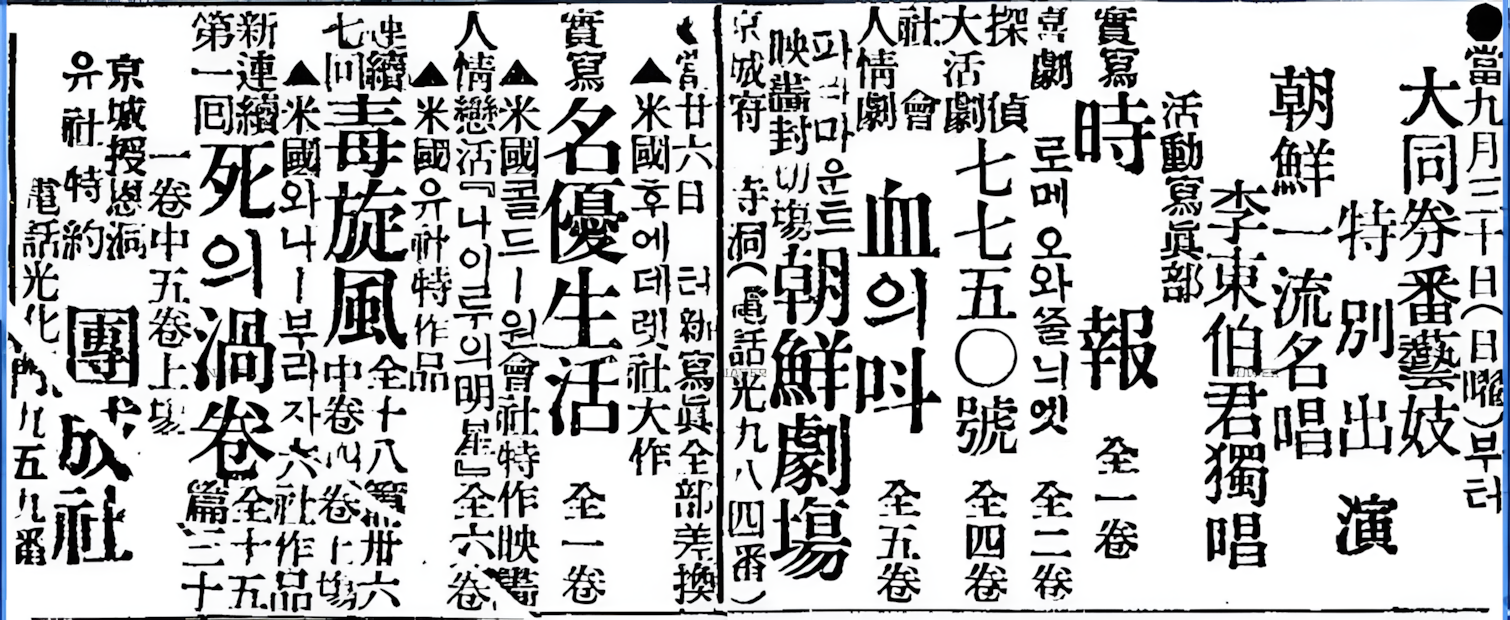 ●當九月三十日(日曜)부터
大同券番藝妓
特別出演
朝鮮一流名唱
李東伯君獨唱
活動寫眞部
實寫 時報 全一卷
喜劇 로메오와쭐늬엣 全二卷
探偵大活劇 七七五〇號 全四卷
社會人情劇 血의呌 全五卷
파라마운트
映畵封切場 朝鮮劇塲
京城府 寺洞(電話光九八四番)
當廿六日 러新寫眞全部差換
▲米國후에데렛社大作
實寫 名優生活 全一卷
▲米國콜드ー윈會社特作映畵
人情戀活『나이루의明星』全六卷
▲米國유社特作品
連續七回 毒旋風 全十八篇卅六卷中卷四卷上塲
▲米國와나ー부라자六社作品
新連續第一回 死의渦卷 全十五篇三十
一卷中五卷上塲
京城授恩洞
유社特約 團成社
電話光化門九五九番